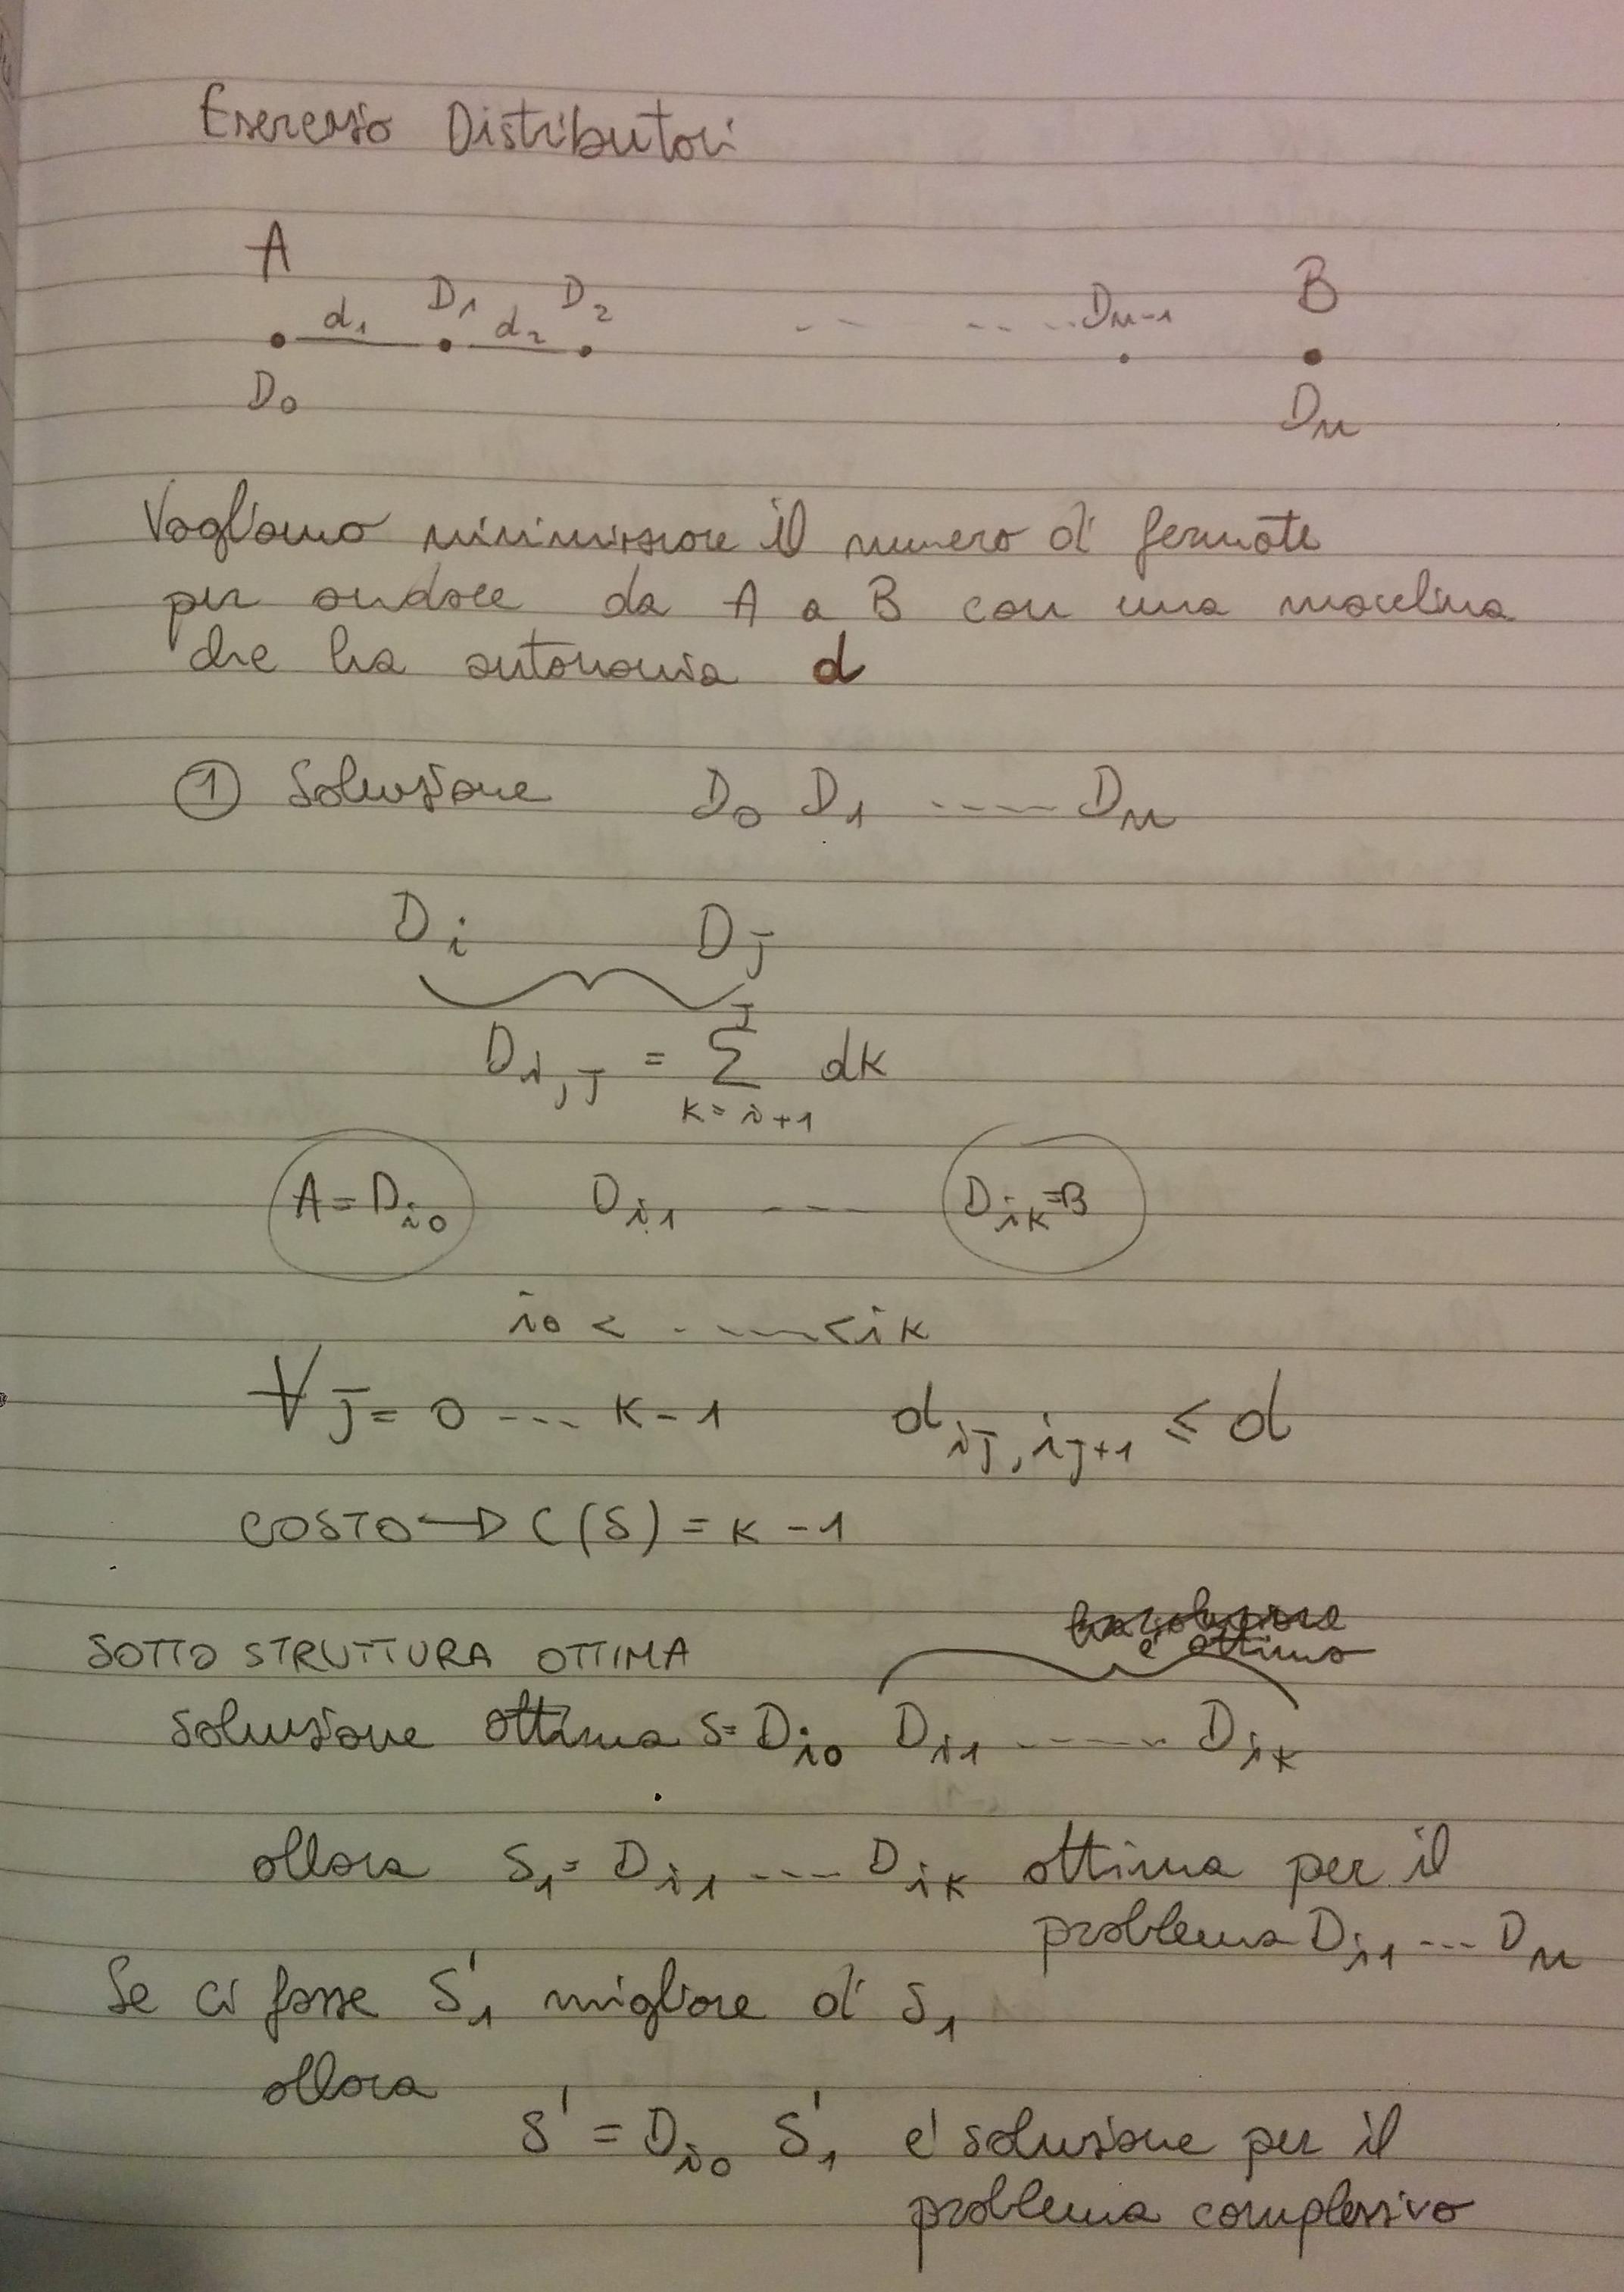 Esercizio Distributori
A B
d1 D1 d2 D2 -- -- ..... Dn-1
D0 Dn
Vogliamo minimizzare il numero di fermate
per andare da A a B con una macchina
che ha autonomia d
① Soluzione D0 D1 ----- Dn
Di Dj
Di,j = Σ dk
J
k=i+1
A=Di0 Di1 --- Dik=B
i0 < ------ <ik
∀ J= 0 --- K-1 dij,ij+1 ≤ d
COSTO → C(S) = K-1
è ottima
SOTTO STRUTTURA OTTIMA
soluzione ottima S= Di0 Di1 ------ Dik
allora S1= Di1 --- Dik ottima per il
problema Di1 --- Dn
Se ci fosse S'1 migliore di S1
allora
S' = Di0 S'1 è soluzione per il
problema complessivo